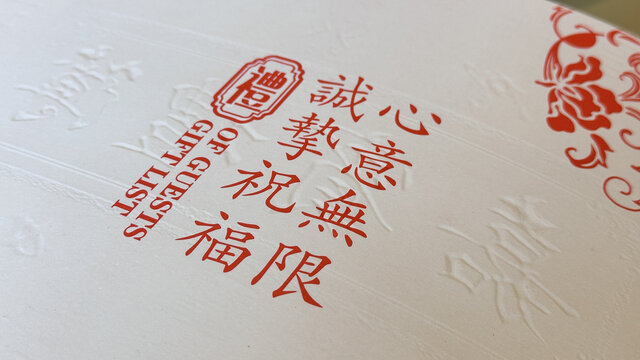 心意無限
誠摯祝福
禮
GIFT LIST
OF GUESTS